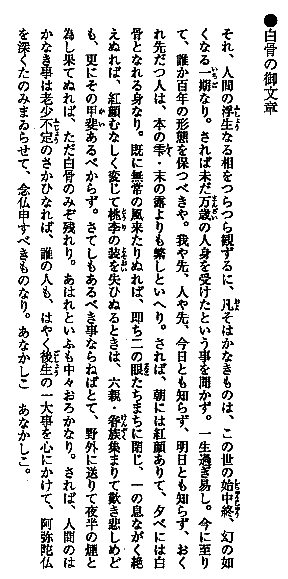 ●白骨の御文章
それ、人間の浮生なる相をつらつら観ずるに、凡そはかなきものは、この世の始中終、幻の如
くなる一期なり。されば未だ万歳の人身を受けたという事を聞かず。一生過ぎ易し。今に至り
て、誰か百年の形態を保つべきや。我や先、人や先、今日とも知らず、明日とも知らず、おく
れ先だつ人は、本の雫・末の露よりも繁しといへり。されば、朝には紅顔ありて、夕べには白
骨となれる身なり。既に無常の風来たりぬれば、即ち二の眼たちまちに閉じ、一の息ながく絶
えぬれば、紅顔むなしく変じて桃李の装を失ひぬるときは、六親・眷族集まりて歎き悲しめど
も、更にその甲斐あるべからず。さてしもあるべき事ならねばとて、野外に送りて夜半の煙と
為し果てぬれば、ただ白骨のみぞ残れり。あはれといふも中々おろかなり。されば、人間のは
かなき事は老少不定のさかひなれば、誰の人も、はやく後生の一大事を心にかけて、阿弥陀仏
を深くたのみまゐらせて、念仏申すべきものなり。あなかしこ　あなかしこ。